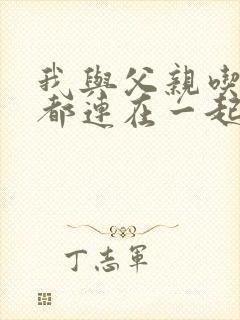 我與父親喫
都連在一起
丁志軍